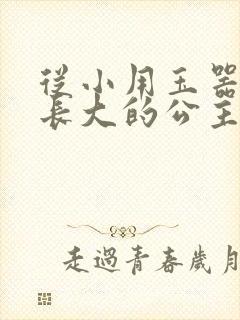 從小用玉器
長大的公主
走過青春歲月